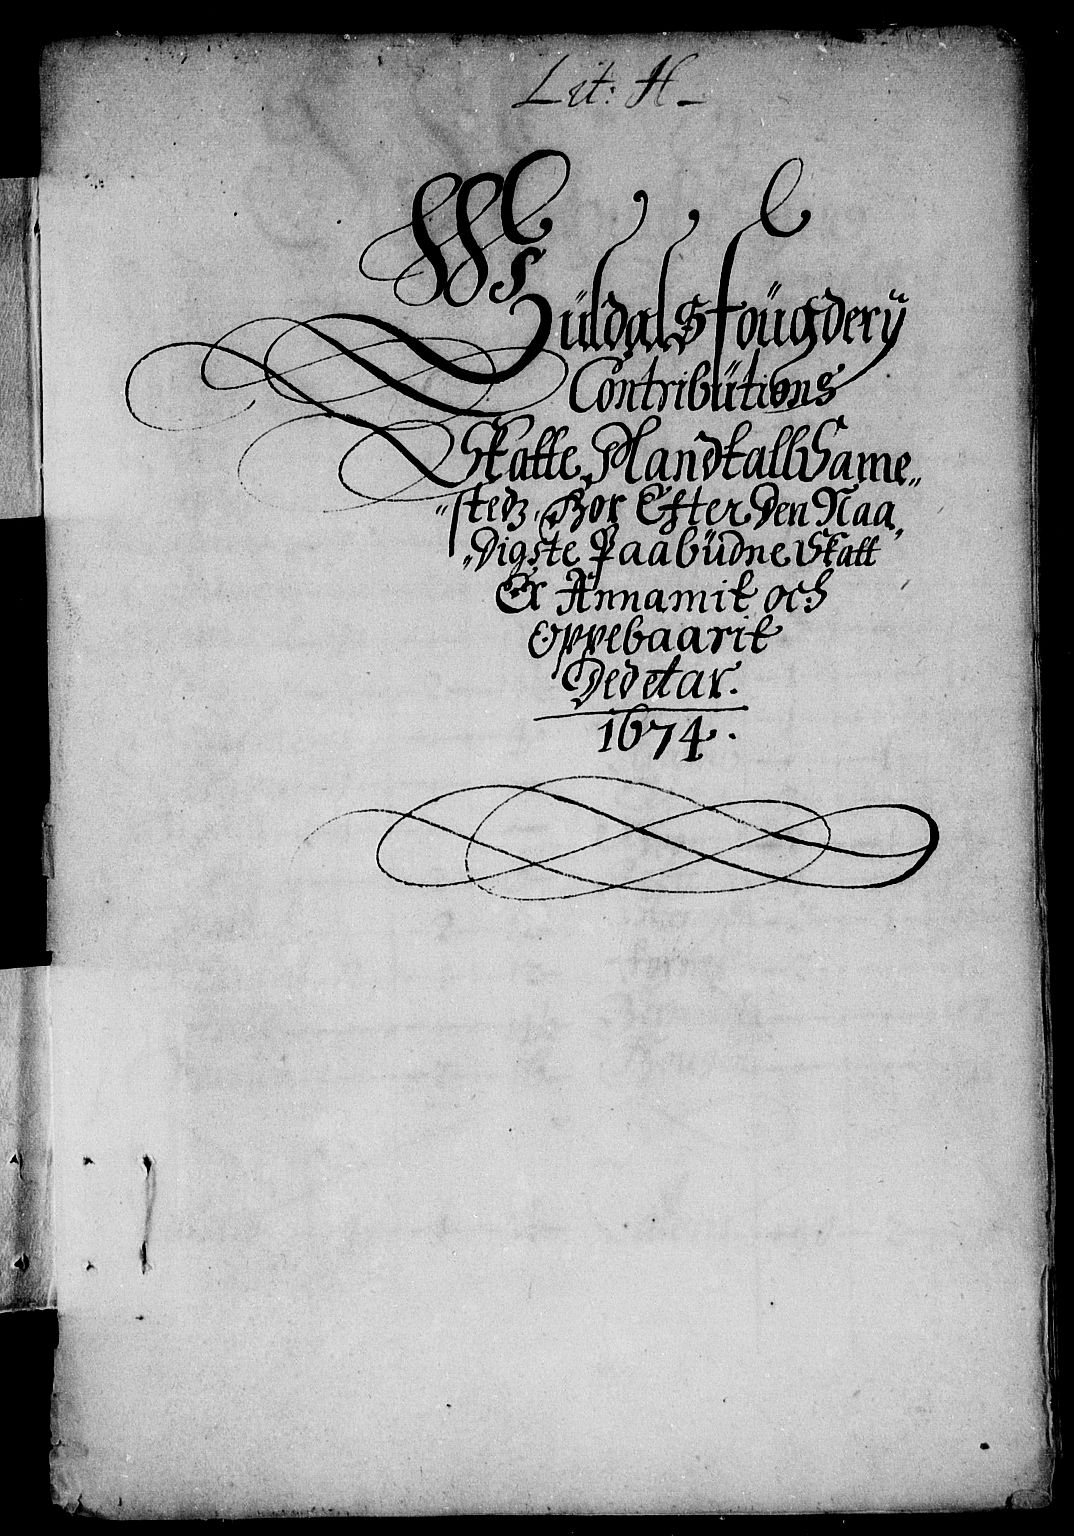 Lit: H
Ws
Süldals fougderÿ
Contributions
Skatte, Mandtall Same„
„stedz, Hor Efter den Naa„
„digste Paabüdne Skatt
Er Annamit och
Oppebaarit
Dedetar.
1674.